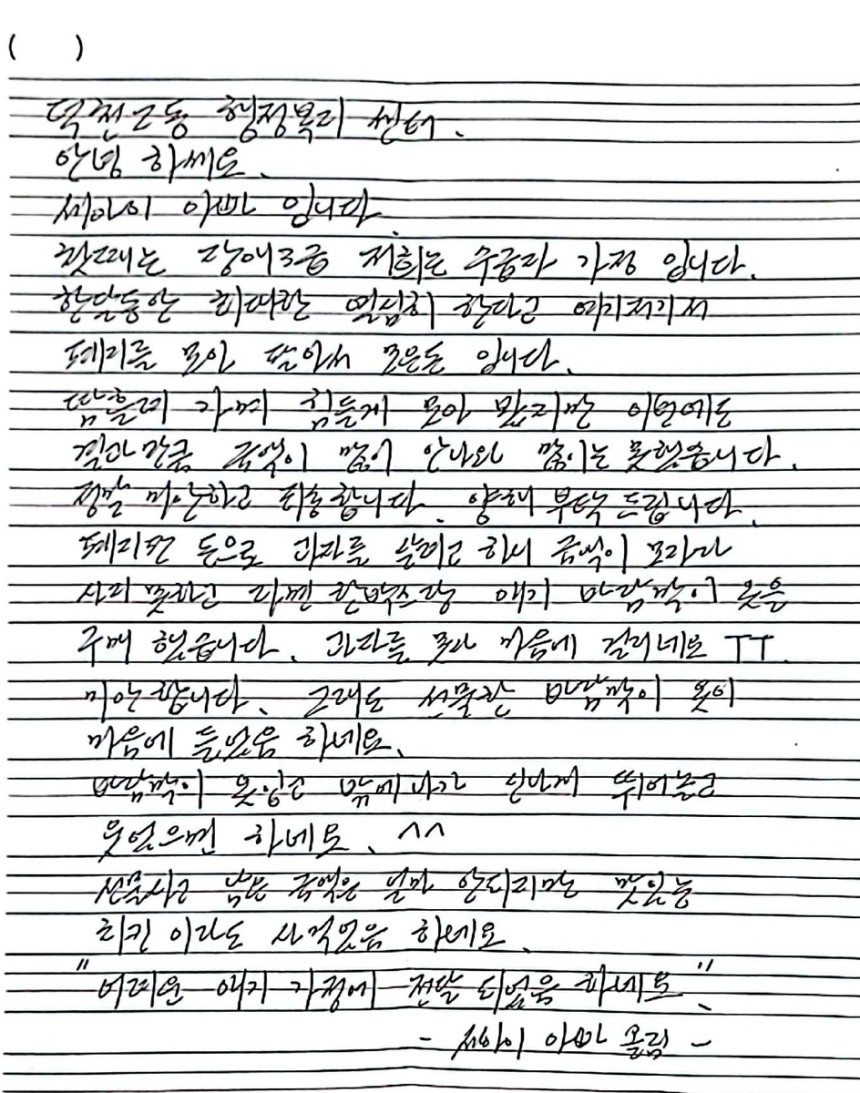 ( )
덕천2동 행정복지 센터.
안녕 하세요.
세아이 아빠 입니다.
첫째는 장애3급 저희는 수급자 가정 입니다.
한달동안 최대한 열심히 한다고 여기저기서
폐지를 모아 팔아서 모은돈 입니다.
땀흘려 가며 힘들게 모아 봤지만 이번에도
결과 만큼 금액이 많이 안나와 많이는 못했습니다.
정말 미안하고 죄송합니다. 양해 부탁 드립니다.
폐지판 돈으로 과자를 살려고 하니 금액이 모자라
사지 못하고 라면 한박스랑 애기 바람막이 옷을
구매 했습니다. 과자를 못사 마음에 걸리네요 TT.
미안합니다. 그래도 선물한 바람막이 옷이
마음에 들었음 하네요.
바람막이 옷입고 밖에나가 신나게 뛰어놀고
웃었으면 하네요. ^^
선물사고 남은 금액은 얼마 안되지만 맛있는
치킨 이라도 사먹었음 하네요.
"어려운 애기 가정에 전달 되었음 하네요."
- 세아이 아빠 올림 -